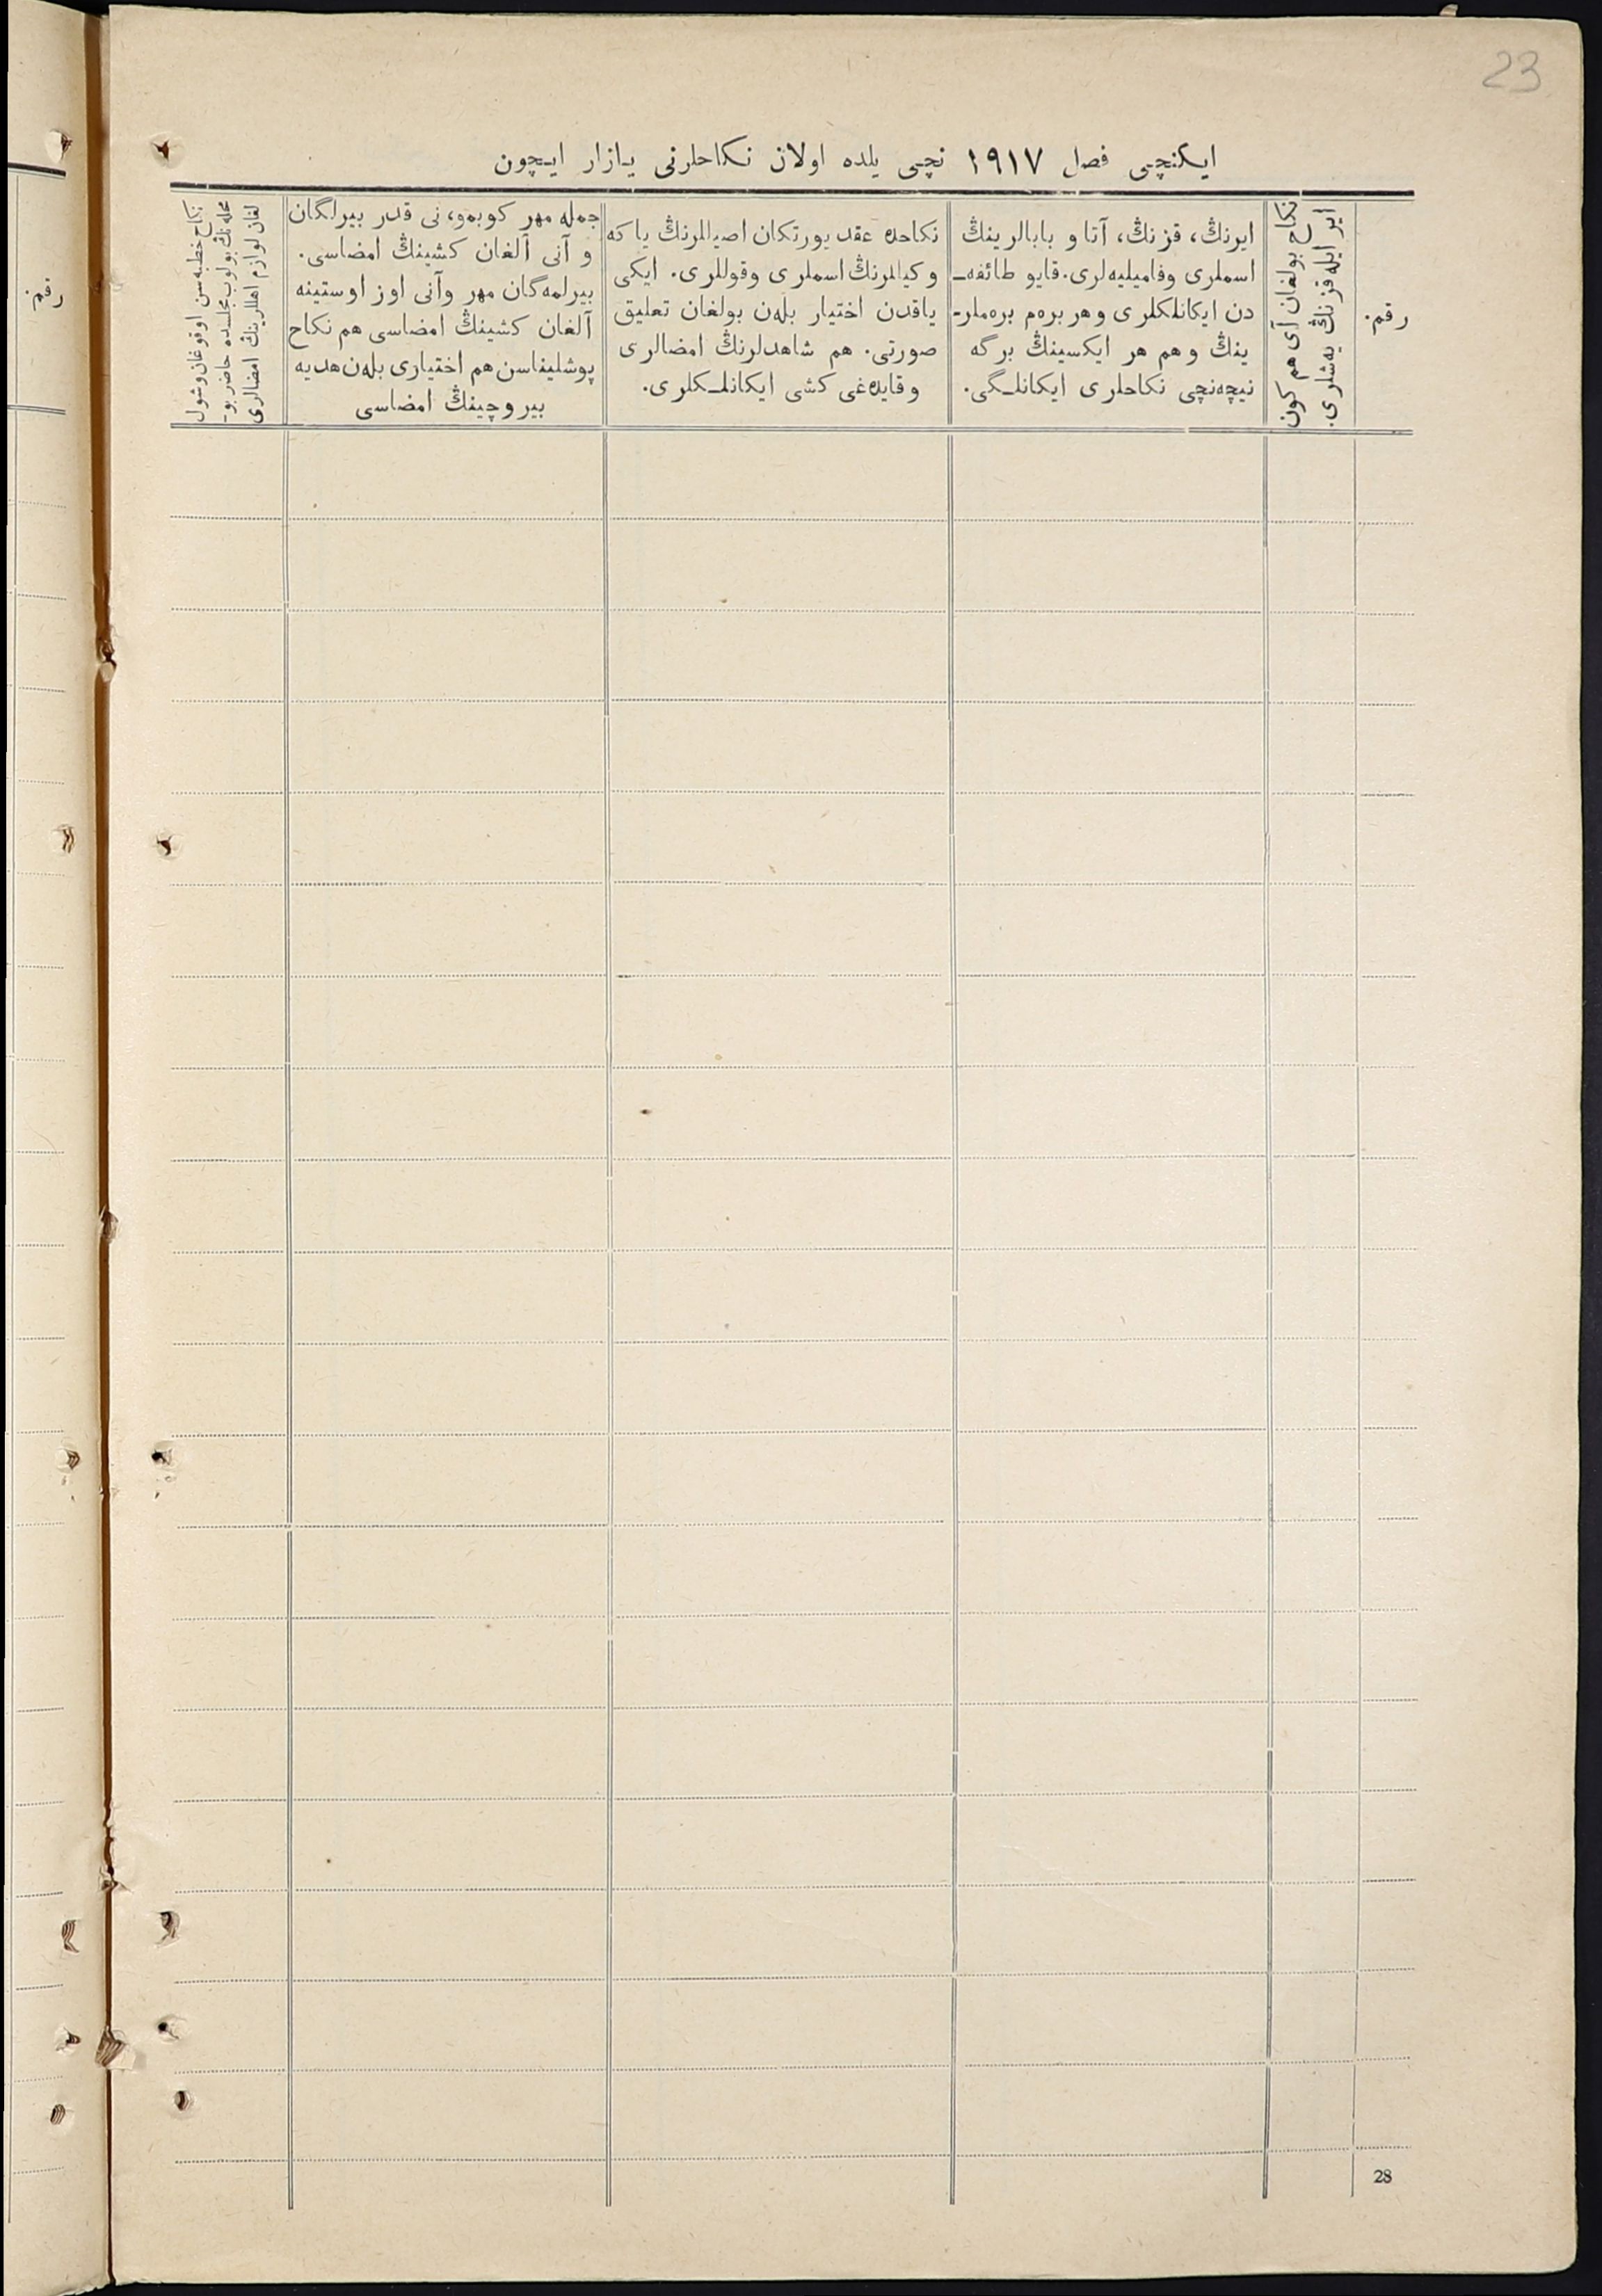 23
ایکنچی فصل ١٩١٧ نچی یلده اولان نکاحلرنی یازار ایچون
رقم.
نکاح بولغان آی هم کون
ایر ایله قزنڭ یەشلری.
ایرنڭ، قزنڭ، آتا و بابالرینڭ
اسملری وفامیلیەلری. قایو طائفەـ
دن ایکانلکلری وهر برەم برەملرـ
ینڭ وهم هر ایکسینڭ برگه
نیچەنچی نکاحلری ایکانلـگی.
نکاحدە عقد یورتکان اصیللرنڭ یاکه
وکیللرنڭ اسملری وقوللری. ایکی
یاقدن اختیار بلەن بولغان تعلیق
صورتی. هم شاهدلرنڭ امضالری
وقایدەغی کشی ایکانلـکلری.
جمله مهر کوبمو، نی قدر بیرلگان
و آنی آلغان کشینڭ امضاسی.
بیرلمەگان مهر وآنی اوز اوستینه
آلغان کشینڭ امضاسی هم نکاح
پوشلیناسن هم اختیاری بلەن هدیه
بیروچینڭ امضاسی
نکاح خطبەسن اوقوغان وشول
محلەنڭ بولوب مجلسده حاضر بوـ
لغان لوازم اهللرینڭ امضالری
رقم.
28